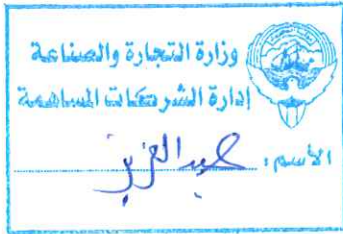 وزارة التجارة والصناعة
إدارة الشركات المساهمة
الاسم: عبدالعزيز